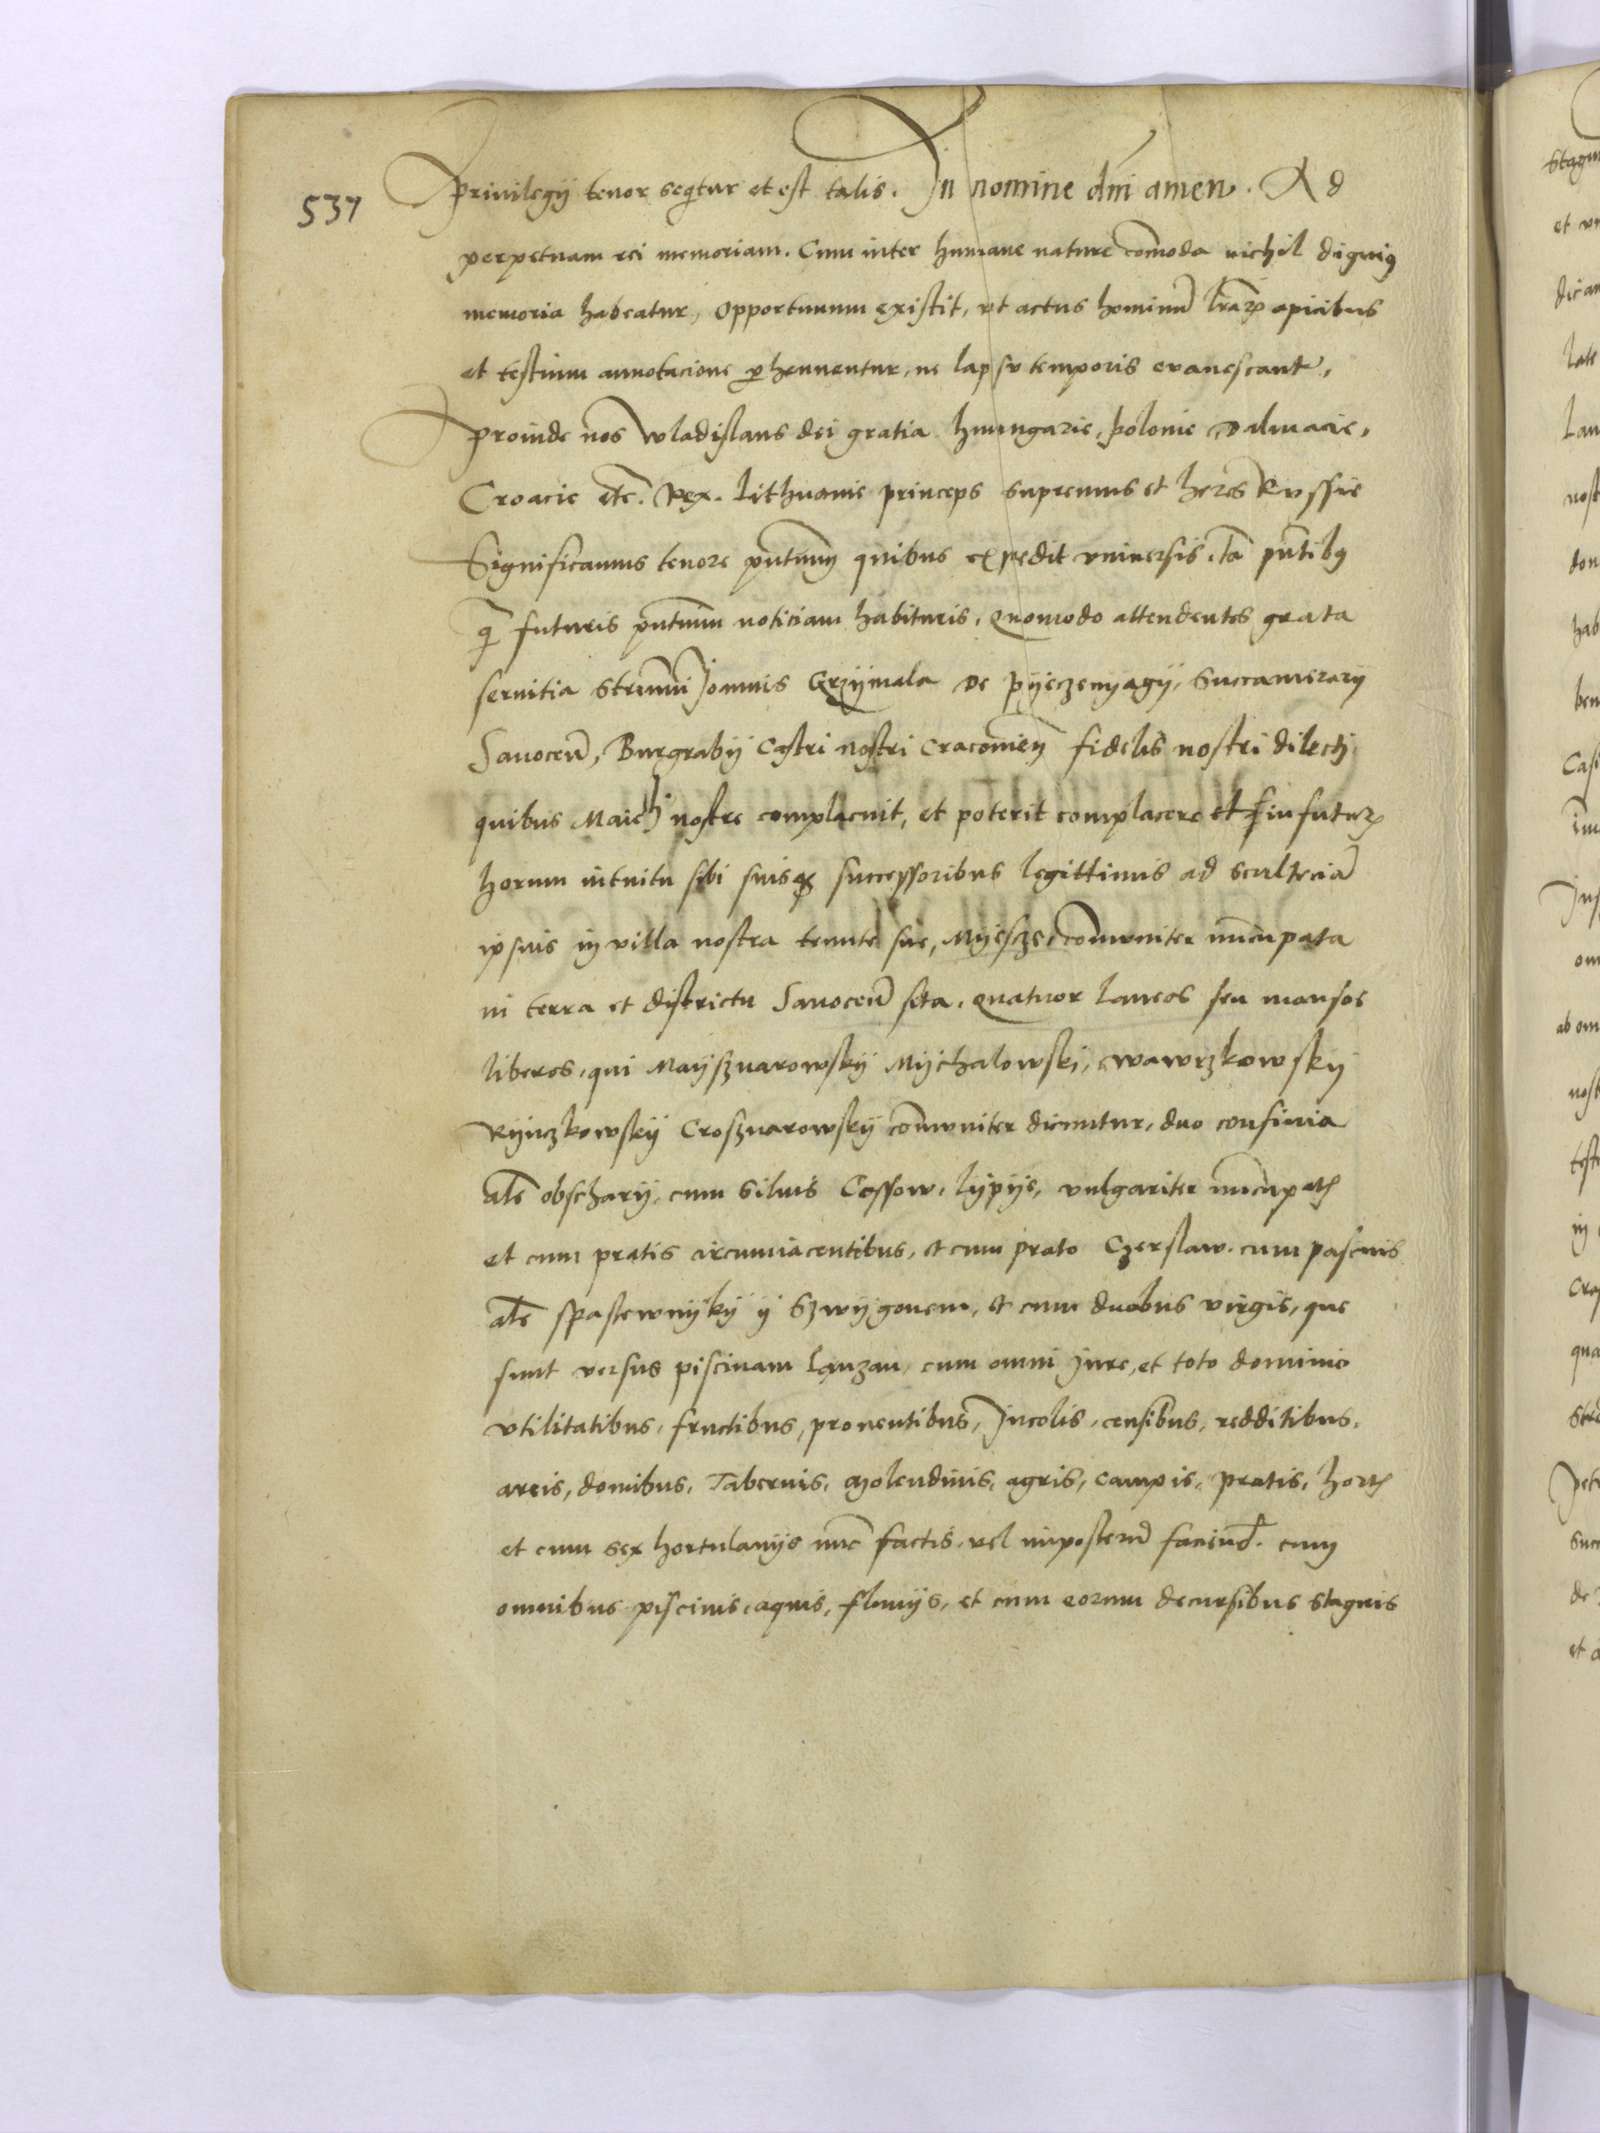 537
Privilegij tenor seqtur et est talis. In nomine dni amen. Ad
perpetuam rei memoriam. Cum inter humane nature comoda nichil dignius
memoria habeatur, opportunum existit, ut actus hominu lrarum apicibus
et testium annotacione perhennentur, ne lapsu temporis evanescant,
Proinde nos Wladislaus dei gratia hungarie, polonie Dalmacie,
Croacie etc. Rex. Lithuanie princeps supremus et heres Russie
Significamus tenore pntium quibus expedit universis, ta pntibus
q futuris pntium noticiam habituris, Quomodo attendentes grata
servitia Strennui Joannis Grzijmala de pijeczenyagij, Succamerarij
Sanocen, Burgrabij Castri nostri Cracovien fidelis nostri dilecti
quibus Maiesti nostre complacuit, et poterit complacere et in futur
horum intuitu sibi suisque successoribus legittimis ad scultecia
ipsius in villa nostra tenute sue, Mijesze comuniter nuncupata
in terra et districtu Sanocen sita, quatuor laneos seu mansos
liberos, qui Maijsznarowskij Mijchalowski, Wawrzkowskij
Rijnczkowskij Crosznarowskij comuniter dicuntur, duo confinia
als obscharij, cum silvis Cossow, lijpije, vulgariter nuncupatis
et cum pratis circumiacentibus, et cum prato Czerslaw. cum pascuis
als spastewnijkij ij Szwijgonem, et cum duobus virgis, que
sunt versus piscinam Lanzan, cum omni Jure, et toto dominio
utilitatibus, fructibus, proventibus, Incolis, censibus, redditibus,
areis, domibus, Tabernis, Molendinis, agris, campis, pratis, hortis
et cum sex hortulanijs nunc factis, vel imposteru faciend. cum
omnibus piscinis, aquis, fluvijs, et cum eorum decursibus stagnis